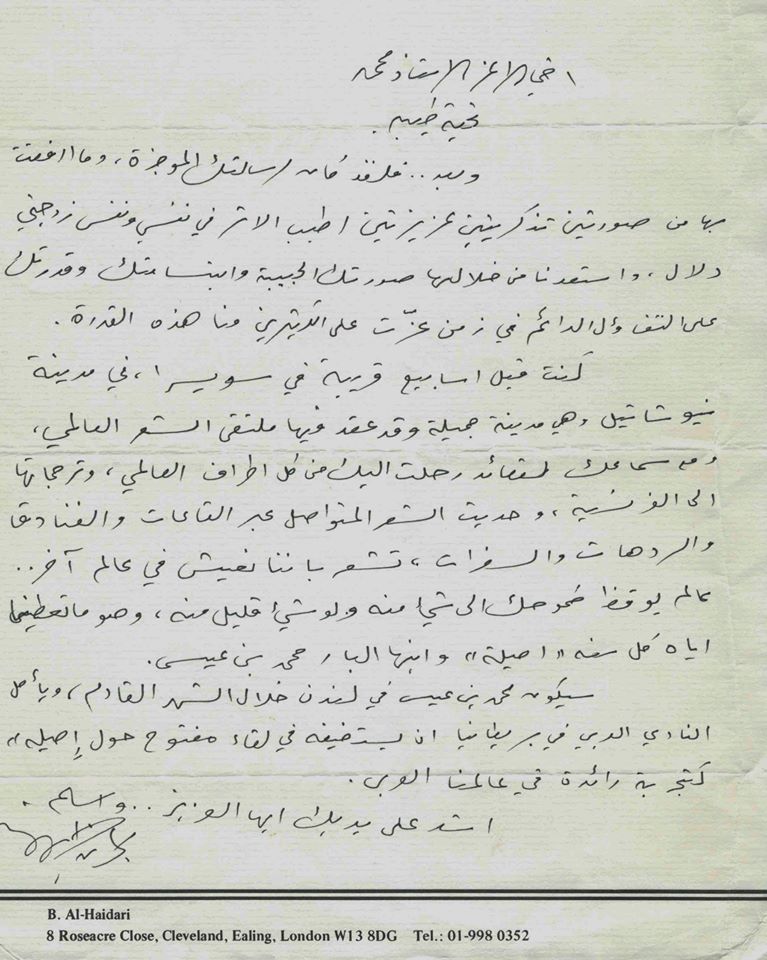 اخي الاعز الاستاذ محمد
تحية طيبة
وبعد .. فلقد كان لرسالتك الموجزة، وما ارفقت
بها من صورتين تذكريتين عزيزتين اطيب الاثر في نفسي ونفس زوجتي
دلال، واستعدنا من خلالها صورتك الحبيبة وابتسامتك وقدرتك
على التفاؤل الدائم في زمن عزّت على الكثيرين منا هذه القدرة.
كنت قبل اسابيع قريبة في سويسرا، في مدينة
نيوشاتيل وهي مدينة جميلة وقد عقد فيها ملتقى الشعر العالمي،
ومع سماعك لقصائد رحلت اليك من كل اطراف العالم، وترجماتها
الى الفرنسية، وحديث الشعر المتواصل عبر القاعات والفنادق
والردهات والسفرات، تشعر باننا نعيش في عالم آخر..
عالم يوقظ طموحك الى شيء منه ولو شيء قليل منه، وهو ما تعطينا
اياه كل سنه «اصيلة» وابنها البار محمد بن عيسى.
سيكون محمد بن عيسى في لندن خلال الشهر القادم، ويأمل
النادي العربي في بريطانيا ان يستضيفه في لقاء مفتوح حول «إصيله»
كتجربة رائدة في عالمنا العربي.
اشد على يديك ايها العزيز .. واسلم.
B. Al-Haidari
8 Roseacre Close, Cleveland, Ealing, London W13 8DG Tel.: 01-998 0352